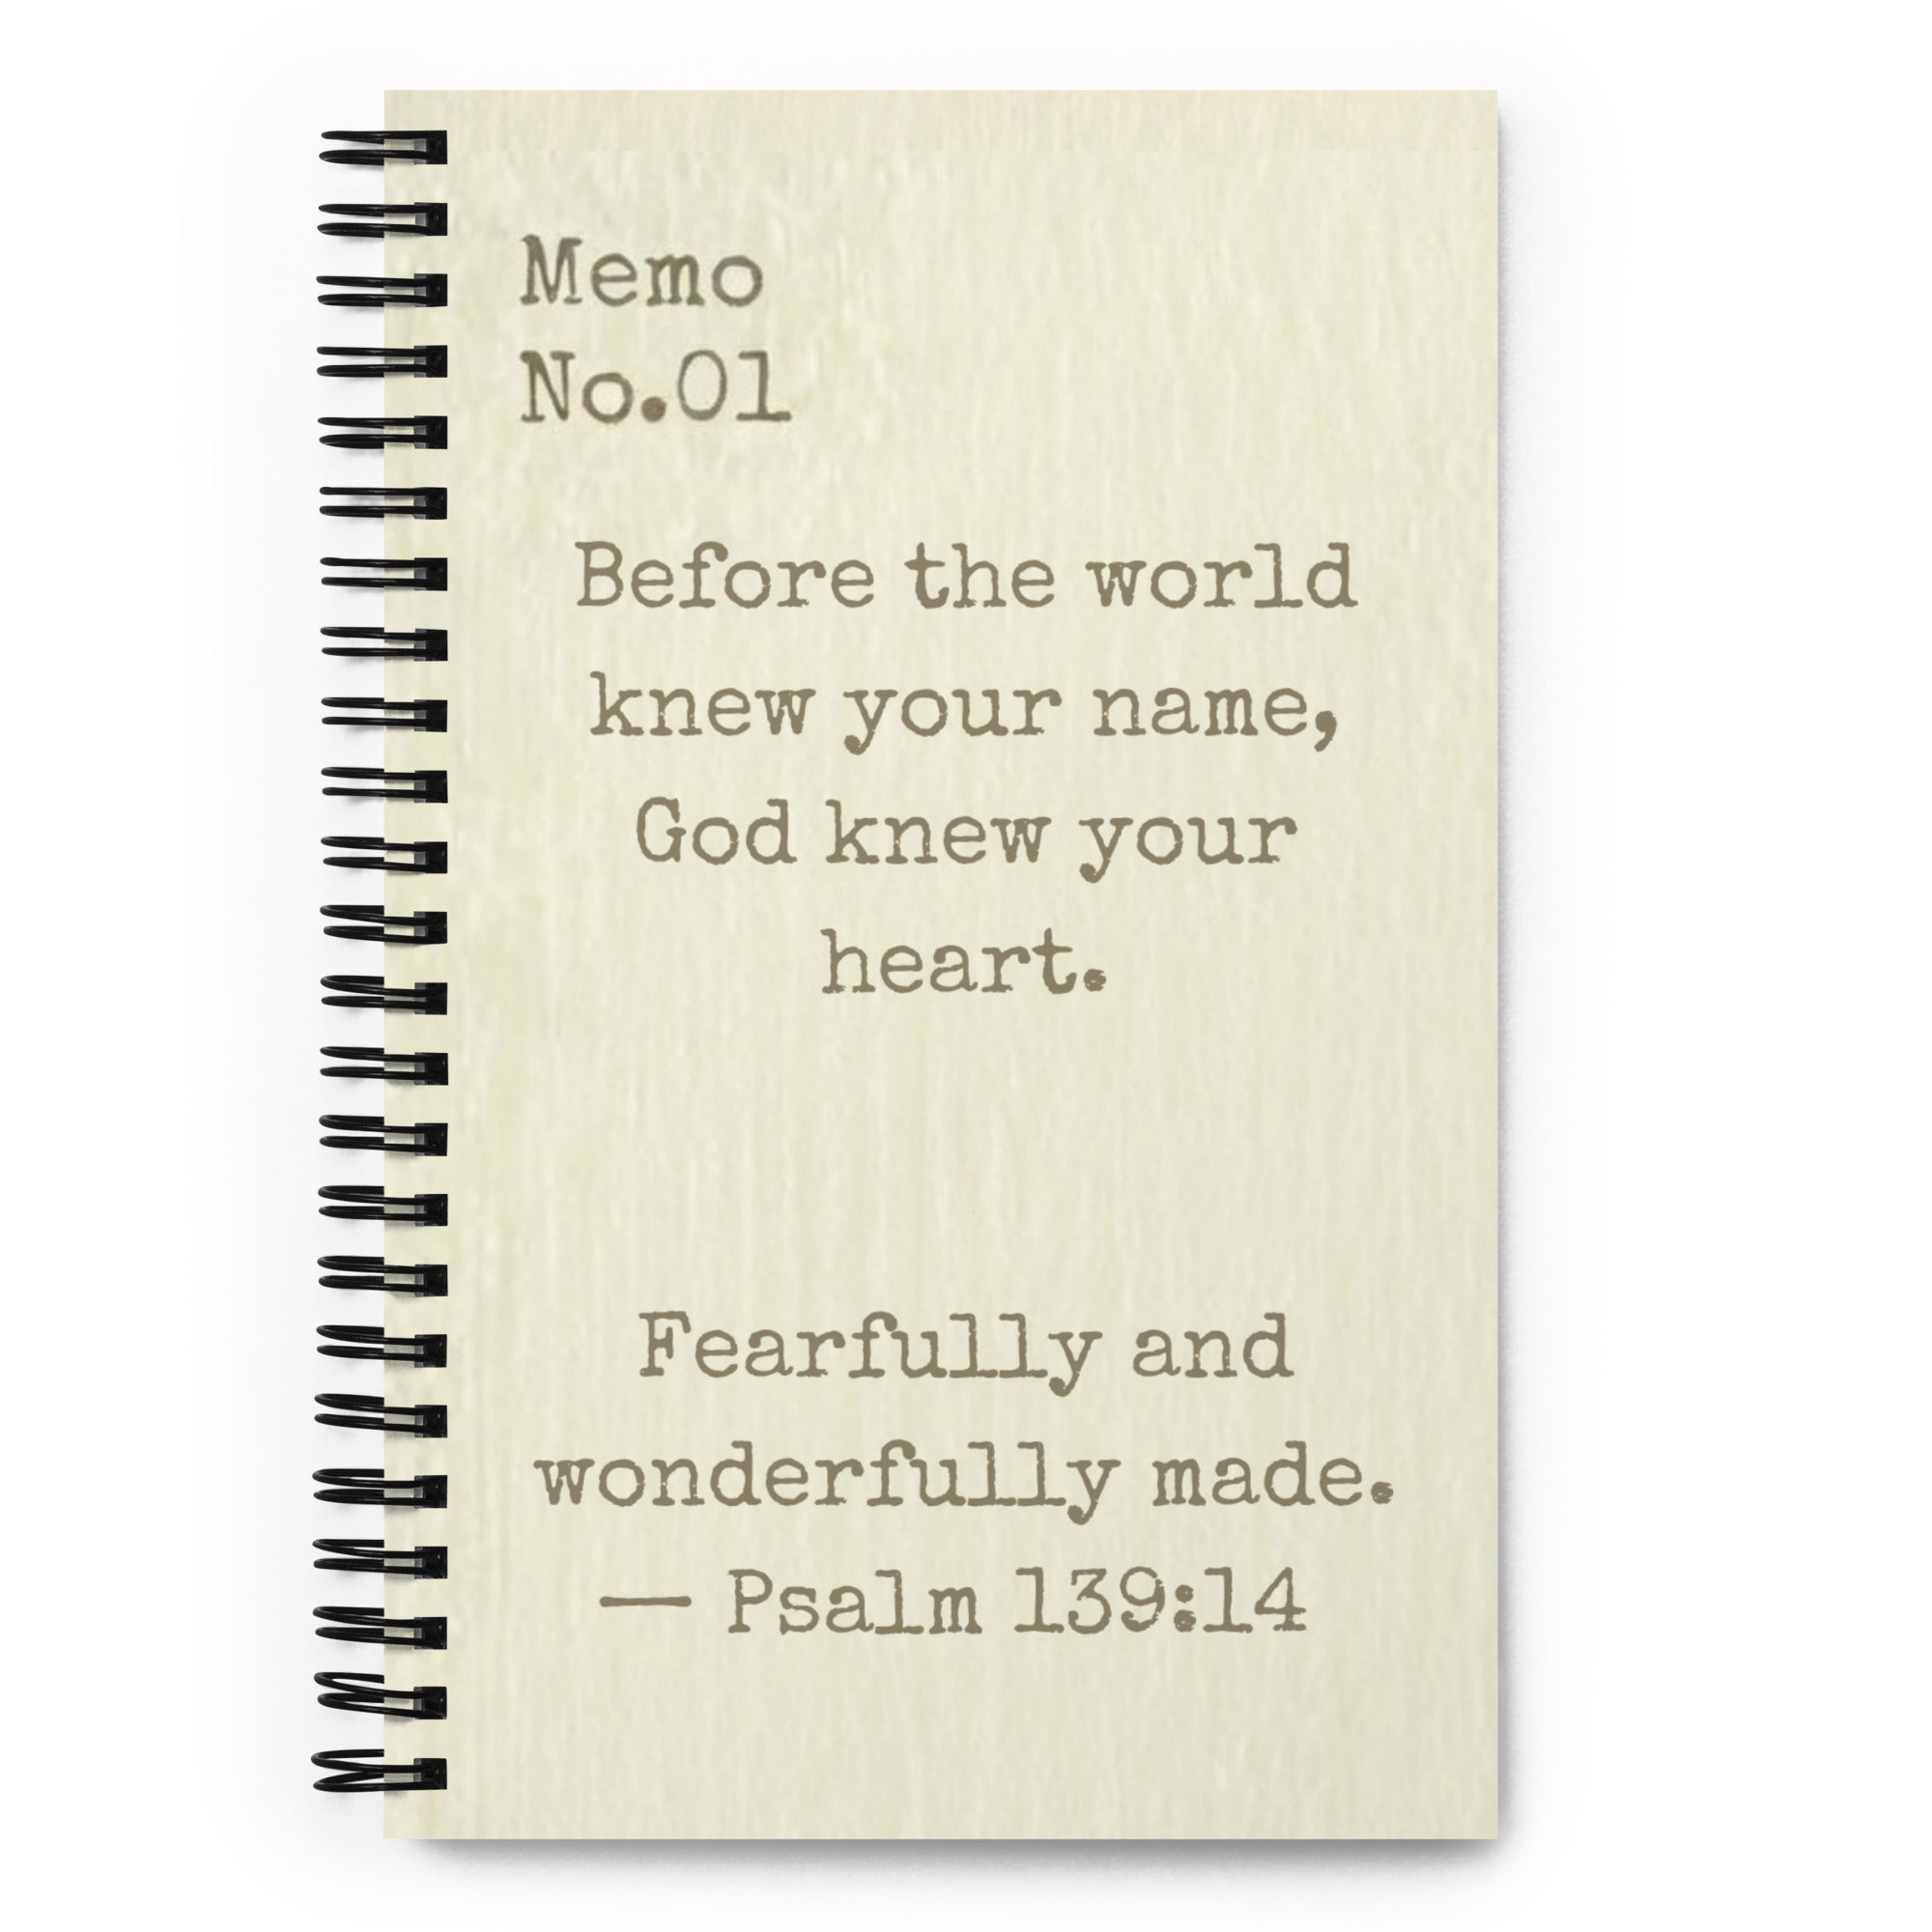 Memo
No.01
Before the world
knew your name,
God knew your
heart.
Fearfully and
wonderfully made.
— Psalm 139:14